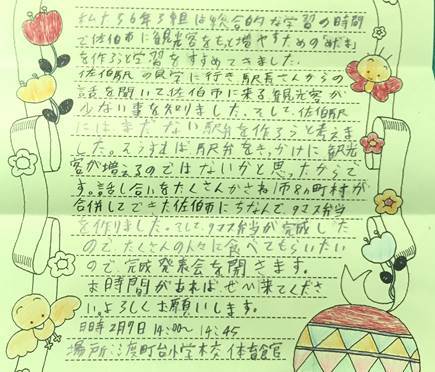 私たち6年3組は総合的な学習の時間
で佐伯市に観光客をもっと増やすための「めだま」
を作ろうと学習をすすめてきました。
佐伯駅の見学に行き駅長さんからの
話を聞いて佐伯市に来る観光客が
少ない事を知りました。そして佐伯駅
にはまだない駅弁を作ろうと考えま
した。そうすれば駅弁をきっかけに観光
客が増えるのではないかと思ったからで
す。話し合いをたくさんかさね1市8か町村が
合併してできた佐伯市にちなんで、9マス弁当
を作りました。そして、9マス弁当が完成した
ので、たくさんの人々に食べてもらいたい
ので完成発表会を開きます。
お時間があればぜひ来てくださ
い。よろしくお願いします。
日時 2月9日 14:00~14:45
場所:渡町台小学校 体育館